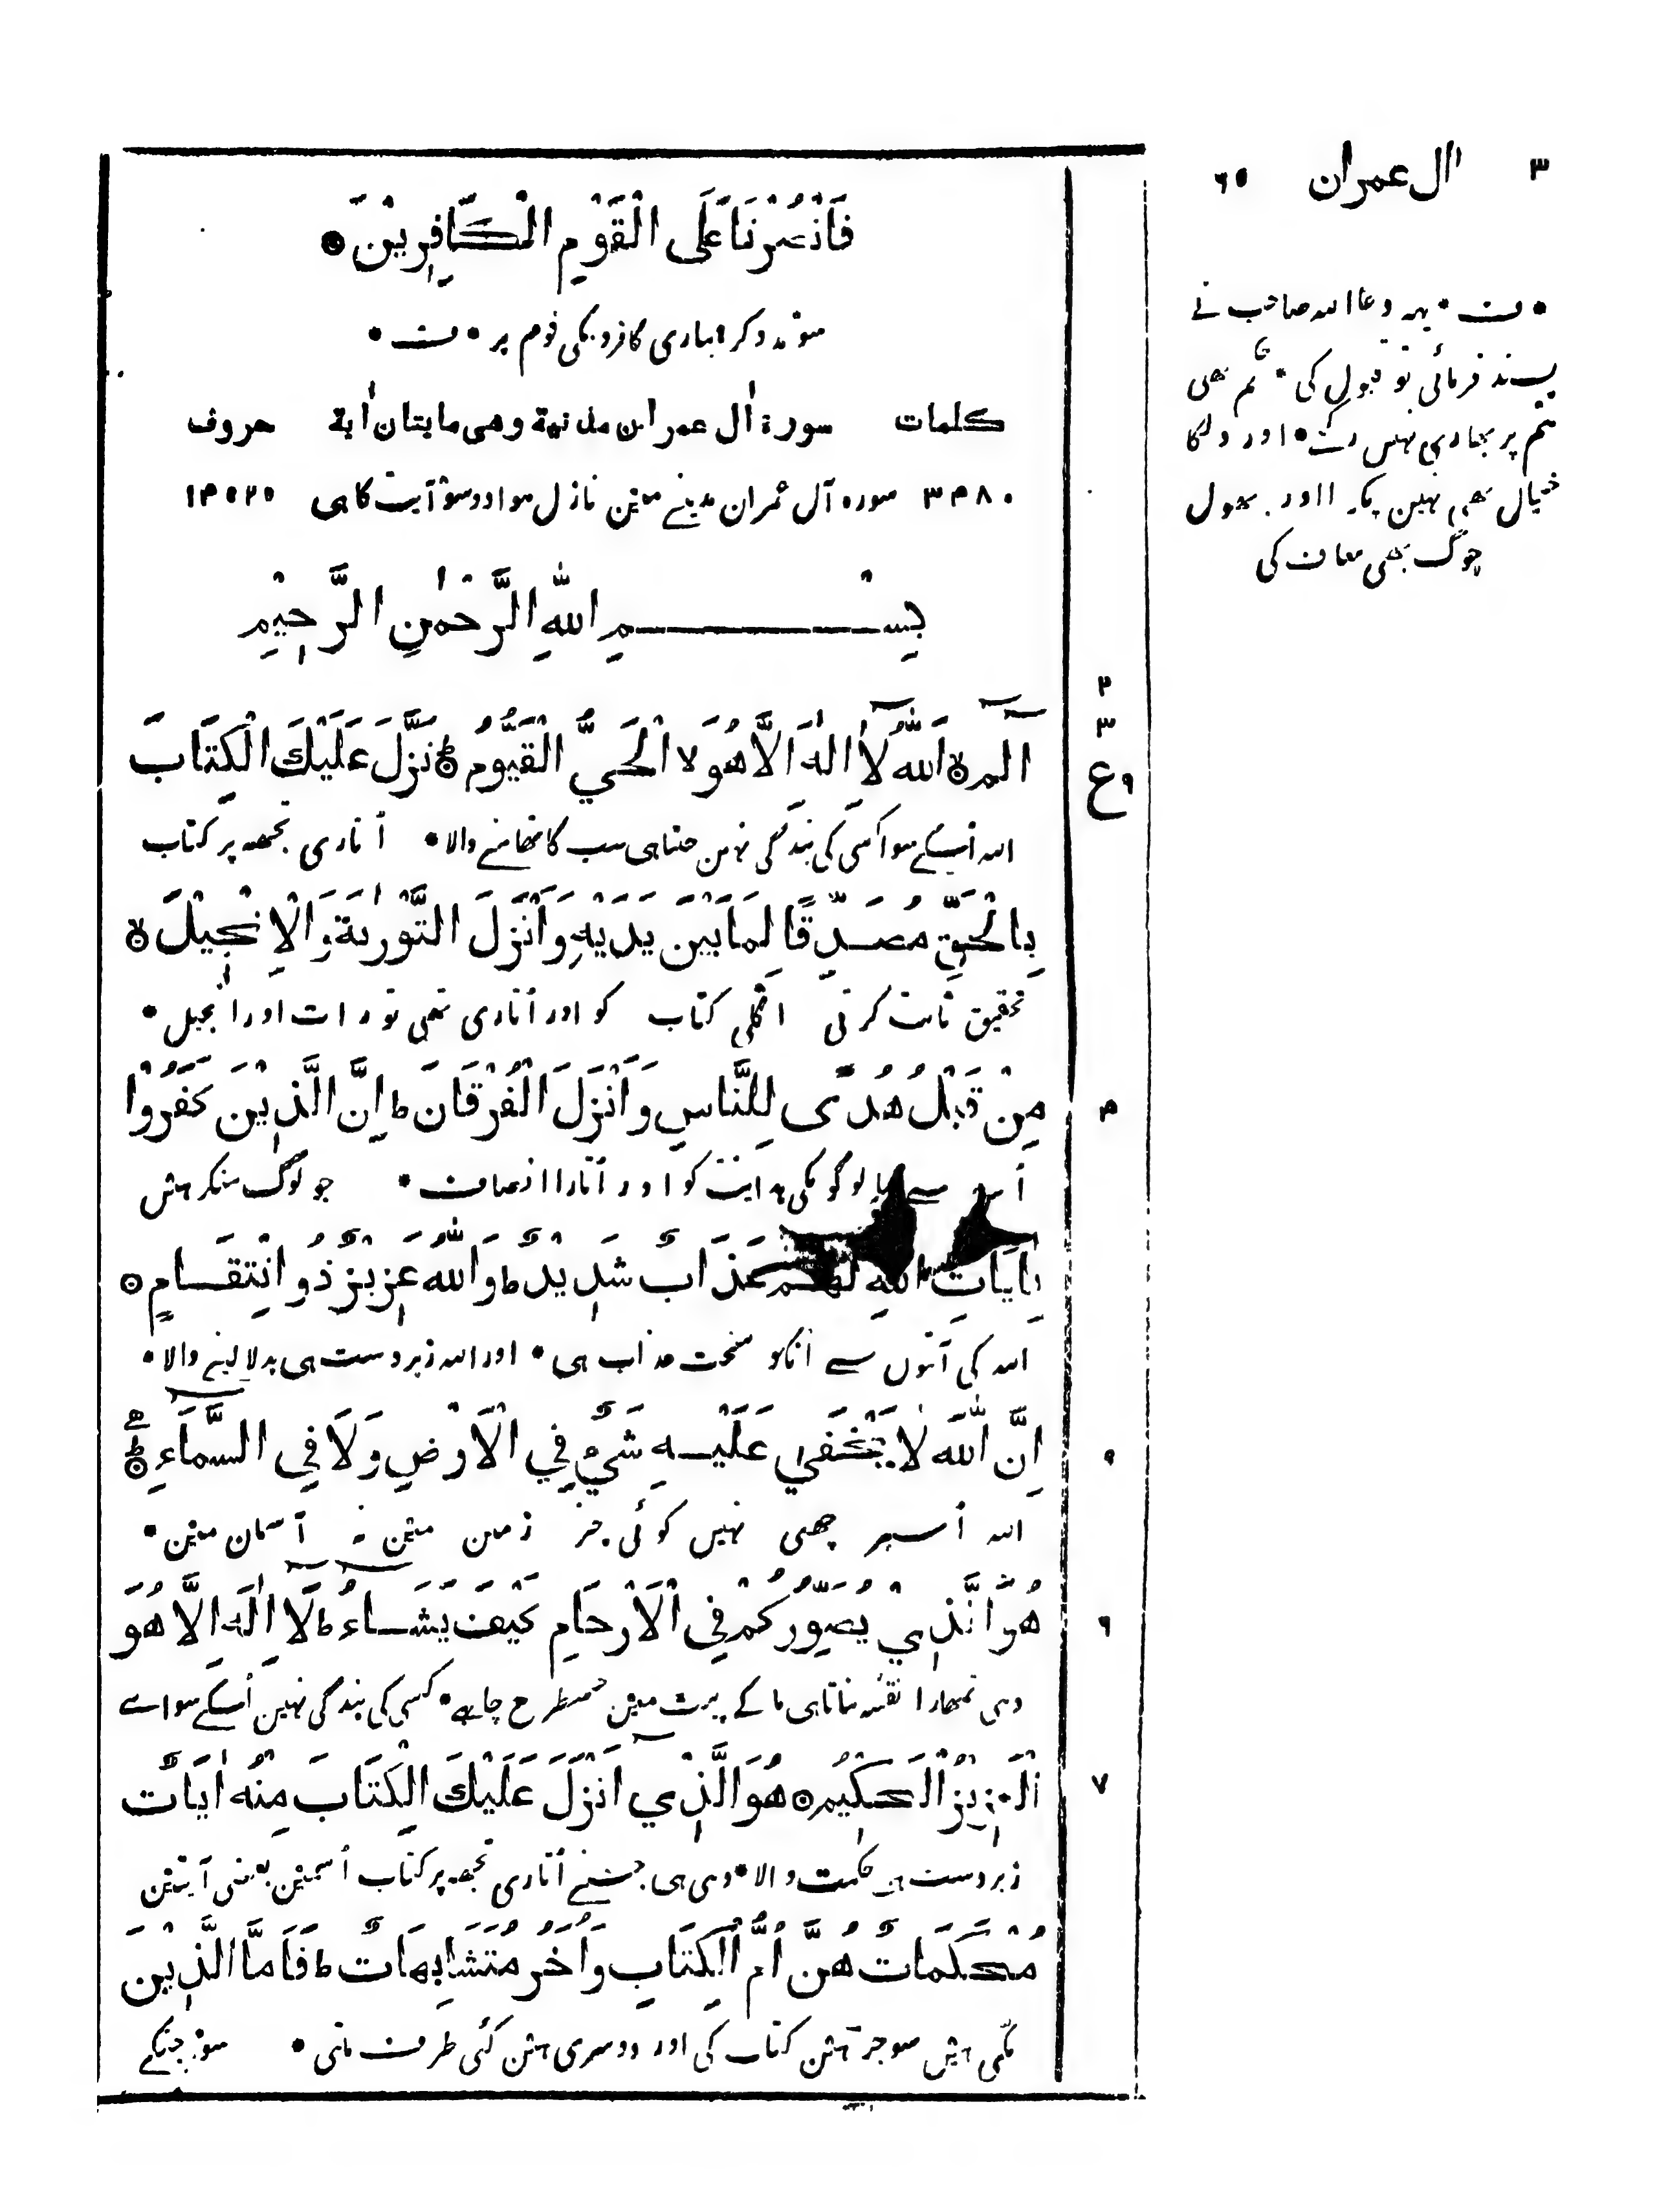 ۳ اٰل عمران ۶۵
فَانْصُرْنَا عَلَى الْقَوْمِ الْكَافِرِيْنَ ۝
سو مدد کر ہماری کافرونکی قوم پر • ف •
كلمات سورة اٰل عمران مدنية وهى مايتان اٰية حروف
۳۴۸۰ سورہ آل عمران مدینے مین نازل ہوا دو سو آیت کا ہی ۱۴۵۲۵
بِسْــــــمِ اللّٰهِ الرَّحْمٰنِ الرَّحِيْمِ
الٓمٓ ۝ اَللّٰهُ لَاۤ اِلٰهَ اِلَّا هُوَ لا الْحَيُّ الْقَيُّوْمُ ۝ نَزَّلَ عَلَيْكَ الْكِتَابَ
اللہ اُسکے سوا کسی کی بندگی نہین جیتا ہی سب کا تھامنے والا • اُتاری تجھہ پر کتاب
بِالْحَقِّ مُصَدِّقًا لِمَا بَيْنَ يَدَيْهِ وَاَنْزَلَ التَّوْرٰىةَ وَالْاِنْجِيْلَ ۝
تحقیق ثابت کرتی اگلی کتاب کو اور اُتاری تھی تورات اور انجیل •
مِنْ قَبْلُ هُدًى لِلنَّاسِ وَاَنْزَلَ الْفُرْقَانَ ط اِنَّ الَّذِيْنَ كَفَرُوْا
لوگونکی ہدایت کو اور اُتارا انصاف • جو لوگ منکر ہین
بِاٰيَاتِ اللّٰهِ لَهُمْ عَذَابٌ شَدِيْدٌ ط وَاللّٰهُ عَزِيْزٌ ذُو انْتِقَامٍ ۝
اللہ کی آیتوں سے اُنکو سخت عذاب ہی • اور اللہ زبردست ہی بدلا لینے والا •
اِنَّ اللّٰهَ لَا يَخْفٰى عَلَيْهِ شَيْءٌ فِي الْاَرْضِ وَلَا فِي السَّمَآءِ ۝
اللہ اُسپر چھپی نہیں کوئی چیز زمین مین نہ آسمان مین •
هُوَ الَّذِيْ يُصَوِّرُكُمْ فِي الْاَرْحَامِ كَيْفَ يَشَآءُ ط لَاۤ اِلٰهَ اِلَّا هُوَ
وہی تمھارا نقشہ بناتا ہی ما کے پیٹ مین جسطرح چاہے • کسی کی بندگی نہین اُسکے سوا ے
الْعَزِيْزُ الْحَكِيْمُ ۝ هُوَ الَّذِيْ اَنْزَلَ عَلَيْكَ الْكِتَابَ مِنْهُ اٰيَاتٌ
زبردست ہی حکمت والا • وہی ہی جسنے اُتاری تجھہ پر کتاب اُسمین بعضی آیتین
مُحْكَمَاتٌ هُنَّ اُمُّ الْكِتَابِ وَاُخَرُ مُتَشَابِهَاتٌ ط فَاَمَّا الَّذِيْنَ
پکی ہین سو جڑ ہین کتاب کی اور دوسری ہین کئی طرف ملتی • سو جنکے
• ف • یہہ دعا اللہ صاحب نے
پسند فرمائی تو قبول کی • حکم بھی
ہم پر بھاری نہیں رکھے • اور دلکا
خیال بھی نہین پکڑا اور بھول
چوک بھی معاف کی
۲
۳
ع ۹
۴
۵
۶
۷